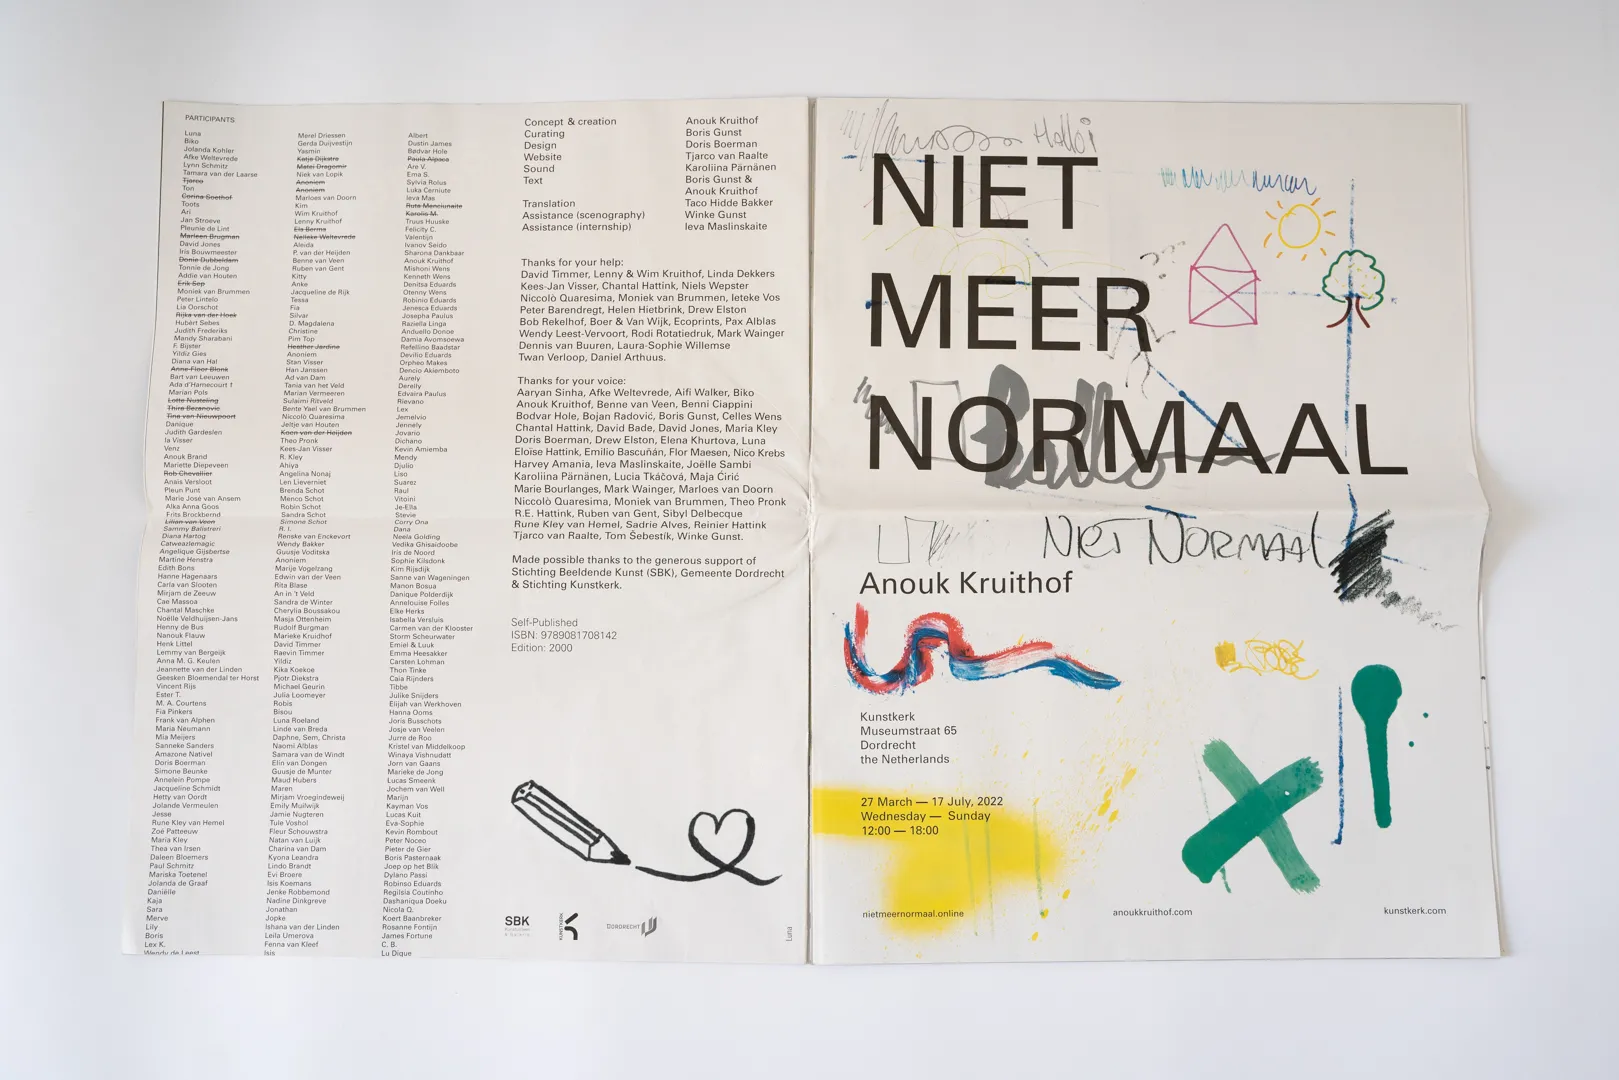 PARTICIPANTS
Luna
Biko
Jolanda Kohler
Afke Weltevrede
Lynn Schmitz
Tamara van der Laarse
Tjarco
Ton
Corina Soethof
Toots
Ari
Jan Stroeve
Pleunie de Lint
Marleen Brugman
David Jones
Iris Bouwmeester
Donie Dubbeldam
Tonnie de Jong
Addie van Houten
Erik Sep
Moniek van Brummen
Peter Lintelo
Lia Oorschot
Rijka van der Hoek
Hubert Sebes
Judith Frederiks
Mandy Sharabani
F. Bijster
Yildiz Gies
Diana van Hal
Anne Floor Blonk
Bart van Leeuwen
Ada d'Hamecourt †
Marian Pols
Lotte Nusteling
Thira Bezanovic
Tina van Nieuwpoort
Danique
Judith Gardeslen
Ia Visser
Venz
Anouk Brand
Mariette Diepeveen
Rob Chevallier
Anais Versloot
Pleun Punt
Marie José van Ansem
Alka Anna Goos
Frits Brockbernd
Lilian van Veen
Sammy Balistreri
Diana Hartog
Catweazlemagic
Angelique Gijsbertse
Martine Henstra
Edith Bons
Hanne Hagenaars
Carla van Slooten
Mirjam de Zeeuw
Cae Massoa
Chantal Maschke
Noëlle Veldhuijsen-Jans
Henny de Bus
Nanouk Flauw
Henk Littel
Lemmy van Bergeijk
Anna M. G. Keulen
Jeannette van der Linden
Geesken Bloemendal ter Horst
Vincent Rijs
Ester T.
M. A. Courtens
Fia Pinkers
Frank van Alphen
Maria Neumann
Mia Meijers
Sanneke Sanders
Amazone Nativel
Doris Boerman
Simone Beunke
Annelein Pompe
Jacqueline Schmidt
Hetty van Oordt
Jolande Vermeulen
Jesse
Rune Kley van Hemel
Zoë Patteeuw
Maria Kley
Thea van Irsen
Daleen Bloemers
Paul Schmitz
Mariska Toetenel
Jolanda de Graaf
Daniëlle
Kaja
Sara
Merve
Lily
Boris
Lex K.
Wendy de Leest
Merel Driessen
Gerda Duijvestijn
Yasmin
Katja Dijkstra
Matei Dragomir
Niek van Lopik
Anoniem
Anoniem
Marloes van Doorn
Kim
Wim Kruithof
Lenny Kruithof
Els Berma
Nelleke Weltevrede
Aleida
P. van der Heijden
Benne van Veen
Ruben van Gent
Kitty
Anke
Jacqueline de Rijk
Tessa
Fia
Silvar
D. Magdalena
Christine
Pim Top
Heather Jardine
Anoniem
Stan Visser
Han Janssen
Ad van Dam
Tania van het Veld
Marian Vermeeren
Sulaimi Ritveld
Bente Yael van Brummen
Niccolò Quaresima
Jeltje van Houten
Koen van der Heijden
Theo Pronk
Kees-Jan Visser
R. Kley
Ahiya
Angelina Nonaj
Len Lieverniet
Brenda Schot
Menco Schot
Robin Schot
Sandra Schot
Simone Schot
R. I.
Renske van Enckevort
Wendy Bakker
Guusje Voditska
Anoniem
Marije Vogelzang
Edwin van der Veen
Rita Blase
An in 't Veld
Sandra de Winter
Cherylia Boussakou
Masja Ottenheim
Rudolf Burgman
Marieke Kruidhof
David Timmer
Raevin Timmer
Yildiz
Kika Koekoe
Pjotr Diekstra
Michael Geurin
Julia Loomeyer
Robis
Bisou
Luna Roeland
Linde van Breda
Daphne, Sem, Christa
Naomi Alblas
Samara van de Windt
Elin van Dongen
Guusje de Munter
Maud Hubers
Maren
Mirjam Vroegindeweij
Emily Muilwijk
Jamie Nugteren
Tule Voshol
Fleur Schouwstra
Natan van Luijk
Charina van Dam
Kyona Leandra
Lindo Brandt
Evi Broere
Isis Koemans
Jenke Robbemond
Nadine Dinkgreve
Jonathan
Jopke
Ishana van der Linden
Leila Umerova
Fenna van Kleef
Isis
Albert
Dustin James
Bødvar Hole
Paula Alpaca
Are V.
Ema S.
Sylvia Rolus
Luka Cerniute
Ieva Mas
Ruta Menciunaite
Karolis M.
Truus Huuske
Felicity C.
Valentijn
Ivanov Seido
Sharona Dankbaar
Anouk Kruithof
Mishoni Wens
Kenneth Wens
Denitsa Eduards
Otenny Wens
Robinio Eduards
Jenesca Eduards
Josepha Paulus
Raziella Linga
Anduello Donoe
Damia Avomsoewa
Refellino Baadstar
Devilio Eduards
Orpheo Makes
Dencio Akiemboto
Aurely
Derelly
Edvaira Paulus
Rievano
Lex
Jemelvio
Jennely
Jovario
Dichano
Kevin Amiemba
Mendy
Djulio
Liso
Suarez
Raul
Vitoini
Je-Ella
Stevie
Corry Ona
Dana
Neela Golding
Vedika Ghisaidoobe
Iris de Noord
Sophie Kilsdonk
Kim Rijsdijk
Sanne van Wageningen
Manon Bosua
Danique Polderdijk
Annelouise Folles
Elke Herks
Isabella Versluis
Carmen van der Klooster
Storm Scheurwater
Emiel & Luuk
Emma Heesakker
Carsten Lohman
Thon Tinke
Caia Rijnders
Tibbe
Julike Snijders
Elijah van Werkhoven
Hanna Ooms
Joris Busschots
Josje van Veelen
Jurre de Roo
Kristel van Middelkoop
Winaya Vishnudatt
Jorn van Gaans
Marieke de Jong
Lucas Smeenk
Jochem van Well
Marijn
Kayman Vos
Lucas Kuit
Eva-Sophie
Kevin Rombout
Peter Noceo
Pieter de Gier
Boris Pasternaak
Joep op het Blik
Dylano Passi
Robinso Eduards
Regilsia Coutinho
Dashaniqua Doeku
Nicola Q.
Koert Baanbreker
Rosanne Fontijn
James Fortune
C. B.
Lu Dique
Concept & creation Anouk Kruithof
Curating Boris Gunst
Design Doris Boerman
Website Tjarco van Raalte
Sound Karoliina Pärnänen
Text Boris Gunst &
Anouk Kruithof
Translation Taco Hidde Bakker
Assistance (scenography) Winke Gunst
Assistance (internship) Ieva Maslinskaite
Thanks for your help:
David Timmer, Lenny & Wim Kruithof, Linda Dekkers
Kees-Jan Visser, Chantal Hattink, Niels Wepster
Niccolò Quaresima, Moniek van Brummen, Ieteke Vos
Peter Barendregt, Helen Hietbrink, Drew Elston
Bob Rekelhof, Boer & Van Wijk, Ecoprints, Pax Alblas
Wendy Leest-Vervoort, Rodi Rotatiedruk, Mark Wainger
Dennis van Buuren, Laura-Sophie Willemse
Twan Verloop, Daniel Arthuus.
Thanks for your voice:
Aaryan Sinha, Afke Weltevrede, Aifi Walker, Biko
Anouk Kruithof, Benne van Veen, Benni Ciappini
Bodvar Hole, Bojan Radović, Boris Gunst, Celles Wens
Chantal Hattink, David Bade, David Jones, Maria Kley
Doris Boerman, Drew Elston, Elena Khurtova, Luna
Eloïse Hattink, Emilio Bascuñán, Flor Maesen, Nico Krebs
Harvey Amania, Ieva Maslinskaite, Joëlle Sambi
Karoliina Pärnänen, Lucia Tkáčová, Maja Ćirić
Marie Bourlanges, Mark Wainger, Marloes van Doorn
Niccolò Quaresima, Moniek van Brummen, Theo Pronk
R.E. Hattink, Ruben van Gent, Sibyl Delbecque
Rune Kley van Hemel, Sadrie Alves, Reinier Hattink
Tjarco van Raalte, Tom Šebestík, Winke Gunst.
Made possible thanks to the generous support of
Stichting Beeldende Kunst (SBK), Gemeente Dordrecht
& Stichting Kunstkerk.
Self-Published
ISBN: 9789081708142
Edition: 2000
SBK
KUNSTKERK
DORDRECHT
Luna
Hallo!
NIET
MEER
NORMAAL
NIET NORMAAL
Anouk Kruithof
Kunstkerk
Museumstraat 65
Dordrecht
the Netherlands
27 March — 17 July, 2022
Wednesday — Sunday
12:00 — 18:00
nietmeernormaal.online
anoukkruithof.com
kunstkerk.com